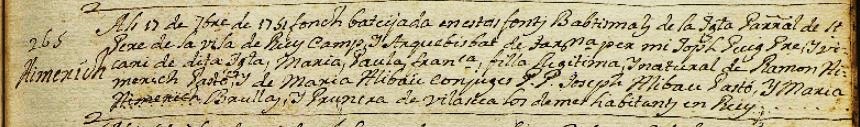 Als 17 de 7bre de 1751 fonch batejada en estas fonts Babtismals de la Igla Parral de St
Pere de la vila de Reus Camp, Y Arquebisbat de Tarrna per mi Joph Puig Pre, Y vi-
265
cari de dita Igla, Maria, Paula, Franca, filla llegitima, Y natural de Ramon Ai-
Aimerich
merich Pastó, Y de Maria Alibau conjuges P.P. Joseph Alibau Pastó, Y Maria
Aimerich Brullas, Y Prunera de Vilaseca los demes habitants en Reus.